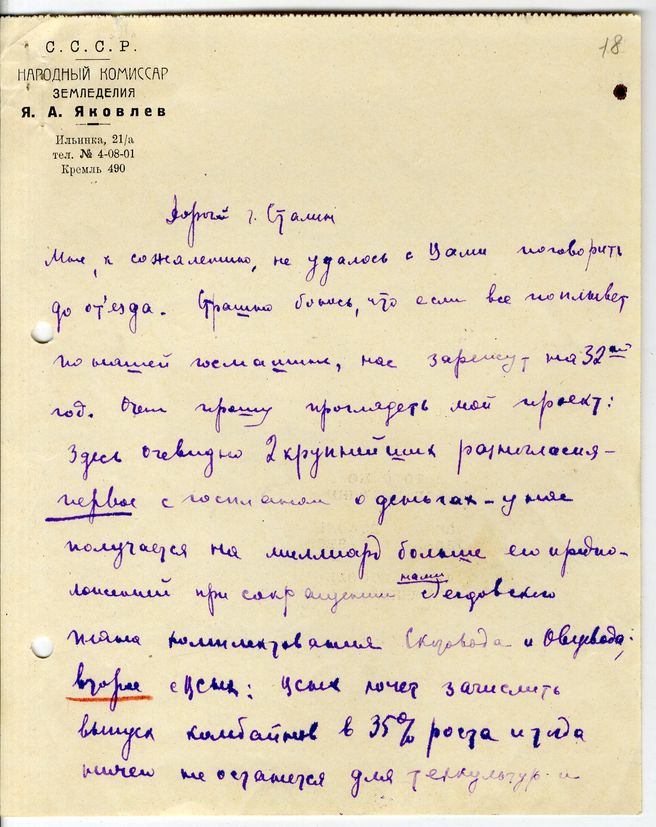 С. С. С. Р.
НАРОДНЫЙ КОМИССАР
ЗЕМЛЕДЕЛИЯ
Я. А. Яковлев
Ильинка, 21/а
тел. № 4-08-01
Кремль 490
18
Дорогой т. Сталин
Мне, к сожалению, не удалось с Вами поговорить
до от'езда. Страшно боюсь, что если все поплывет
по нашей госмашине, нас зарежут на 32ый
год. Очен прошу проглядеть мой проект:
Здесь очевидно 2 крупнейших разногласия –
первое с госпланом о деньгах – у нас
получается на миллиард больше его предпо-
ложений при сокращении нами
плана комплектования Скотовода и Овцевода;
второе с ЦСНХ: ЦСНХ хочет зачислить
выпуск комбайнов в 35% роста и тогда
ничего не останется для техкультур и